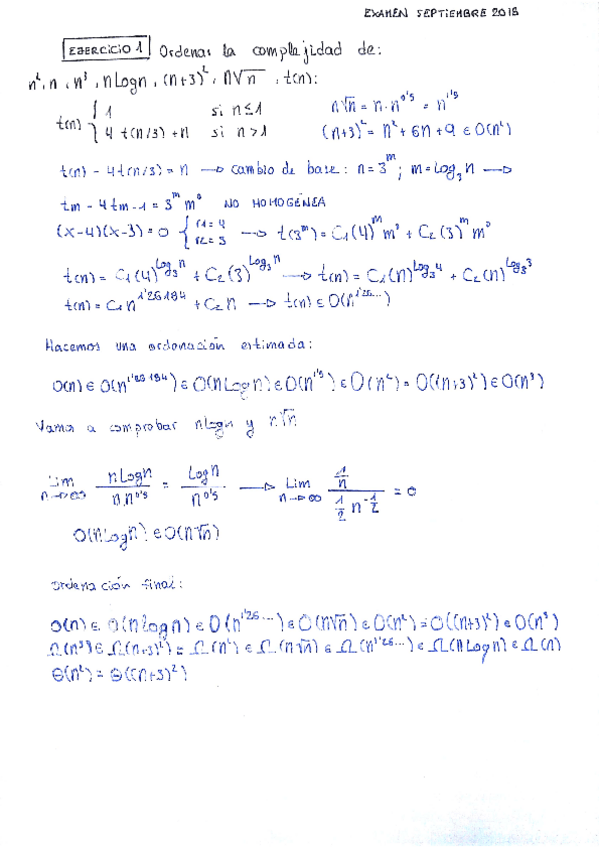 EXAMEN SEPTIEMBRE 2018
EJERCICIO 1 Ordenar la complejidad de:
n², n, n³, nLogn, (n+3)², n√n, t(n):
t(n) { 1 si n≤1 n√n = n·n^0'5 = n^1'5
4 t(n/3) + n si n>1 (n+3)² = n² + 6n + 9 ∈ O(n²)
t(n) - 4t(n/3) = n → cambio de base: n = 3^m ; m = log₃ n →
tm - 4tm-1 = 3^m m^0 NO HOMOGÉNEA
(x-4)(x-3) = 0 { r1 = 4 r2 = 3 → t(3^m) = C1(4)^m m^0 + C2(3)^m m^0
t(n) = C1(4)^Log₃n + C2(3)^Log₃n → t(n) = C1(n)^Log₃4 + C2(n)^Log₃3
t(n) = C1 n^1'26184 + C2 n → t(n) ∈ O(n^1'26...)
Hacemos una ordenación estimada:
O(n) ∈ O(n^1'26184) ∈ O(nLogn) ∈ O(n^1'5) ∈ O(n²) = O((n+3)²) ∈ O(n³)
Vamos a comprobar nLogn y n√n
Lim n→∞ nLogn / n·n^0'5 = Logn / n^0'5 → Lim n→∞ (1/n) / (1/2 n^-1/2) = 0
O(nLogn) ∈ O(n√n)
Ordenación final:
O(n) ∈ O(nLogn) ∈ O(n^1'26...) ∈ O(n√n) ∈ O(n²) = O((n+3)²) ∈ O(n³)
Ω(n³) ∈ Ω((n+3)²) = Ω(n²) ∈ Ω(n√n) ∈ Ω(n^1'26...) ∈ Ω(nLogn) ∈ Ω(n)
Θ(n²) = Θ((n+3)²)